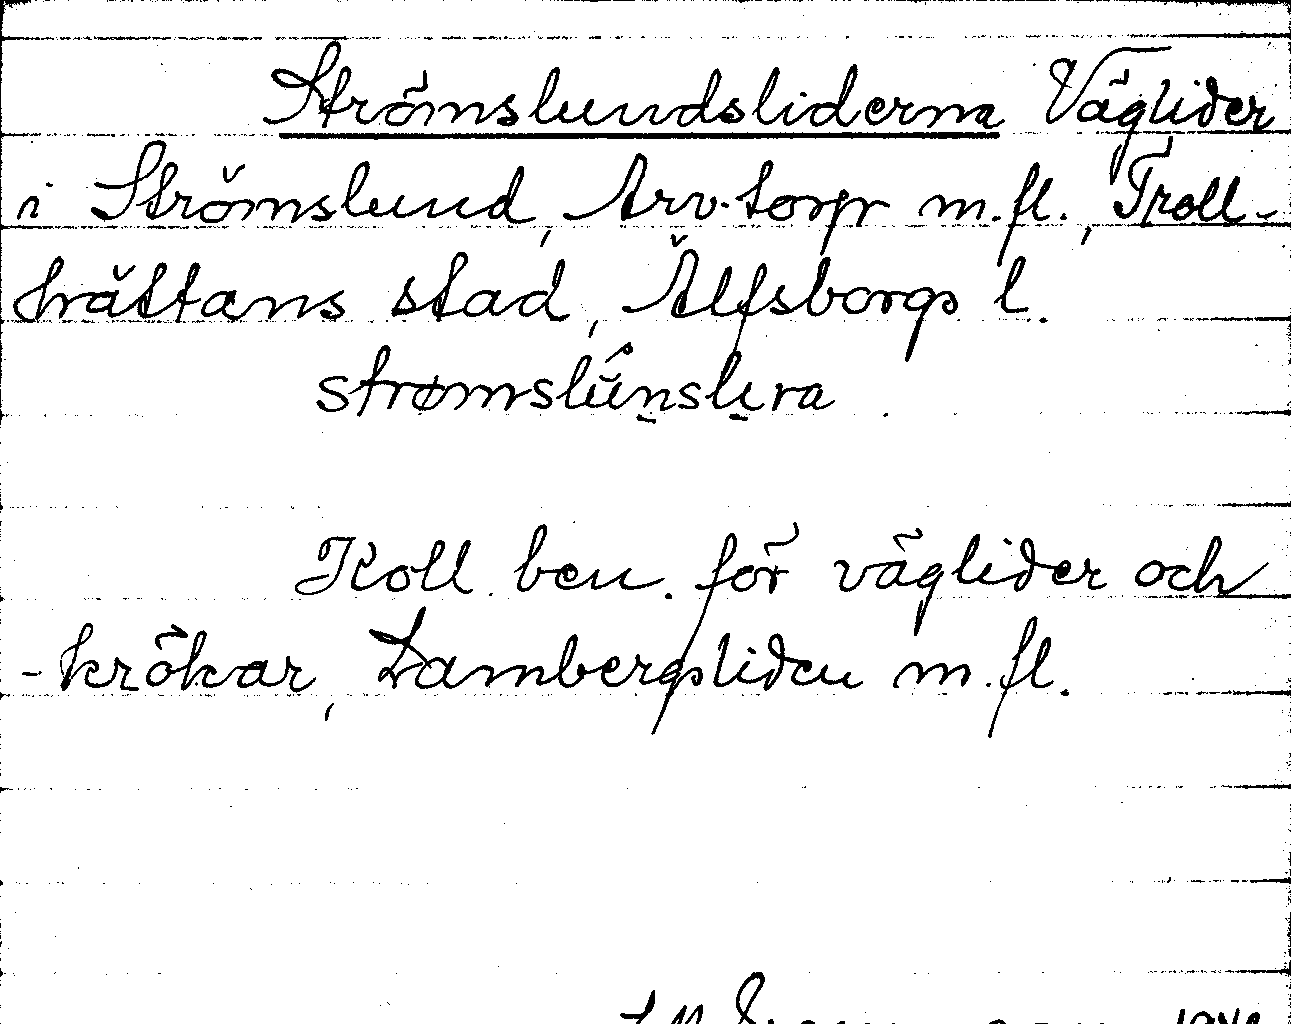 Strömslundsliderna Väglider
i Strömslund, Arv.torp m.fl., Troll-
hättans stad, Älfsborgs l.
strømslùnslıra
Koll. ben. för väglider och
-krökar, Lambergsliden m.fl.